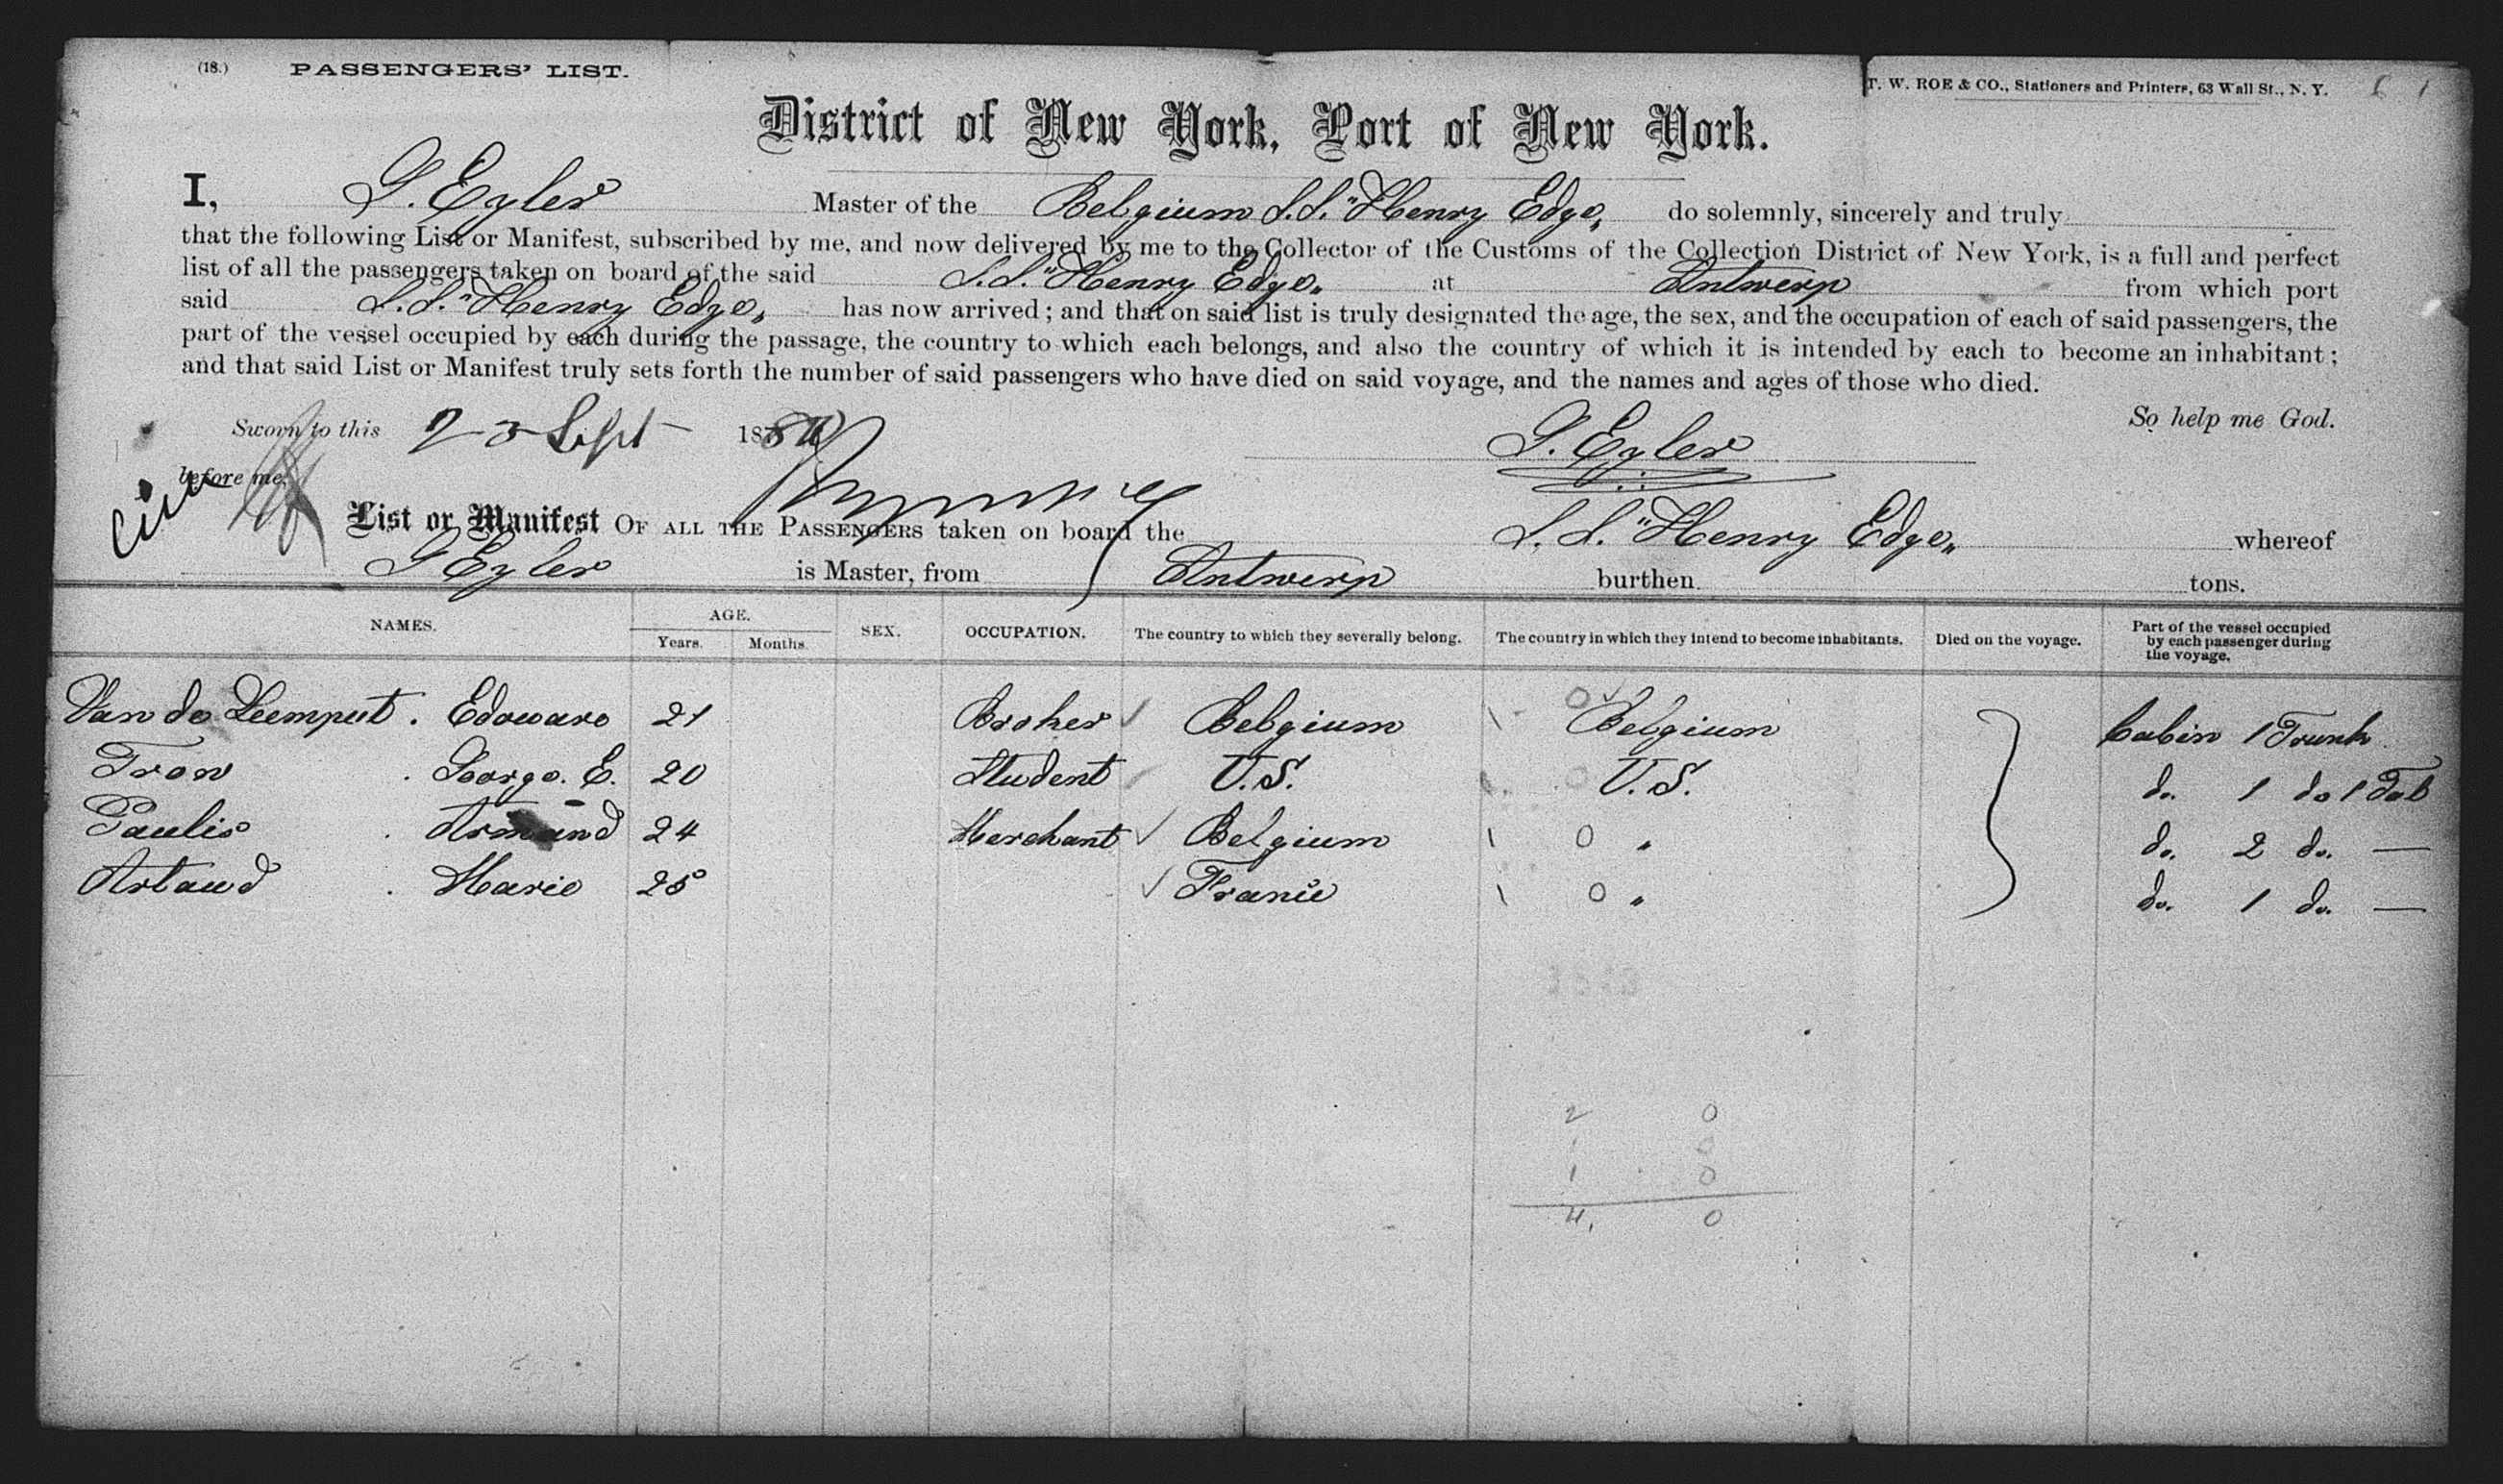 (18.) PASSENGERS' LIST.
T. W. ROE & CO., Stationers and Printers, 63 Wall St., N. Y.
District of New York, Port of New York.
I, G. Eyler Master of the Belgium S.S. "Henry Edye" do solemnly, sincerely and truly
that the following List or Manifest, subscribed by me, and now delivered by me to the Collector of the Customs of the Collection District of New York, is a full and perfect
list of all the passengers taken on board of the said S.S. "Henry Edye" at Antwerp from which port
said S.S. "Henry Edye" has now arrived; and that on said list is truly designated the age, the sex, and the occupation of each of said passengers, the
part of the vessel occupied by each during the passage, the country to which each belongs, and also the country of which it is intended by each to become an inhabitant;
and that said List or Manifest truly sets forth the number of said passengers who have died on said voyage, and the names and ages of those who died.
So help me God.
Sworn to this 23 Sept 1880
G. Eyler
before me,
List or Manifest OF ALL THE PASSENGERS taken on board the S.S. "Henry Edye" whereof
G Eyler is Master, from Antwerp burthen tons.
NAMES. AGE. Years. Months. SEX. OCCUPATION. The country to which they severally belong. The country in which they intend to become inhabitants. Died on the voyage. Part of the vessel occupied by each passenger during the voyage.
Van de Leemput. Edouard 21 Broker Belgium 0 Belgium Cabin 1 Trunk
Tron George. E. 20 Student U.S. 0 U.S. do. 1 do 1
Paulis Armand 24 Merchant Belgium 0 " do. 2 do. —
Artaud Marie 25 France 0 " do. 1 do. —
2 0
1 0
1 0
4 0